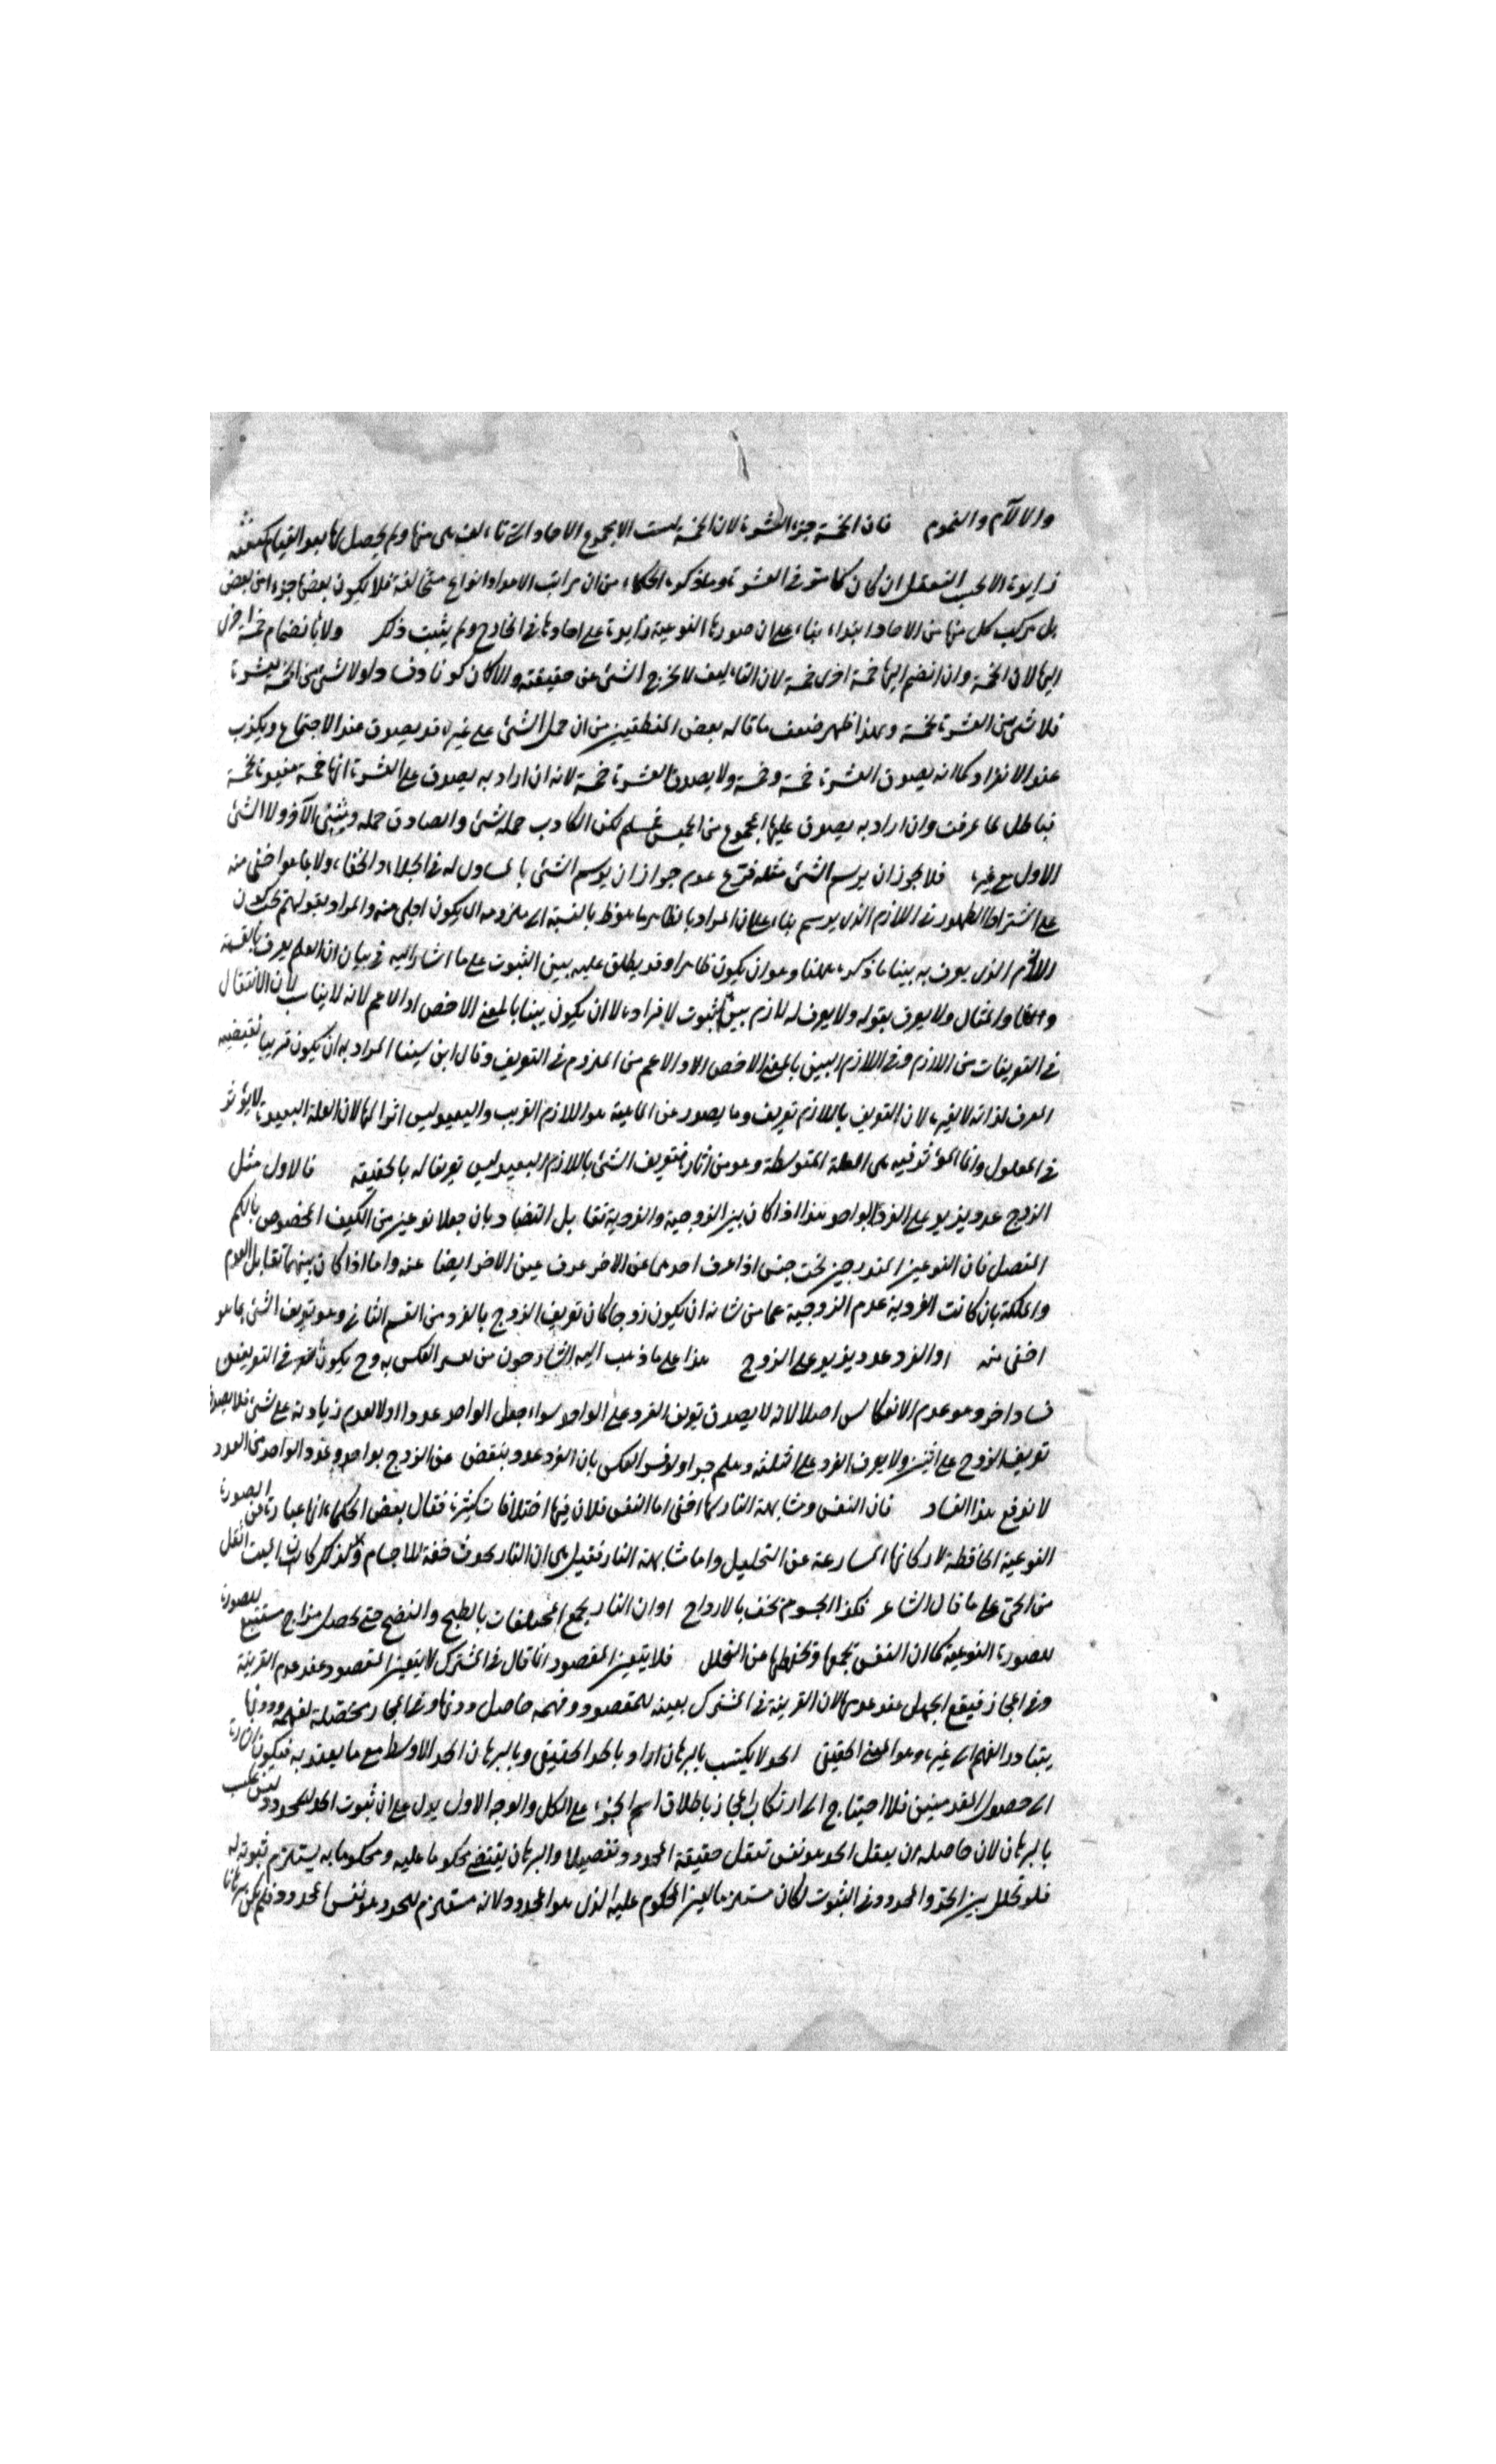 والآلام والغموم فان الخمسة جزء العشرة لان الخمسة ليست الا مجموع الاحاد التي تتألف هى منها ولم يحصل لها بعد القيام كيفية
زايدة الا بحسب التعقل ان كان كما مر في العشرة وما ذكره الحكماء من ان مراتب الاعداد انواع متخالفة فلا يكون بعضها جزءا من بعض
بل تركب كل منها من الاحاد ابتداء بناء على ان صورتها النوعية زايدة على احادها في الخارج ولم يثبت ذلك ولا بانضمام خمسة اخرى
اليها لان الخمسة وان انضم اليها خمسة اخرى خمسة لان التأليف لا يخرج الشئ عن حقيقته والا كان كونا وفسادا ولا شئ من الخمسة بعشرة
فلا شئ من العشرة بخمسة وبهذا ظهر ضعف ما قاله بعض المنطقيين من ان حمل الشئ على غيره قد يصدق عند الاجتماع ويكذب
عند الانفراد كما انه يصدق العشرة خمسة وخمسة ولا يصدق العشرة خمسة لانه ان اراد به يصدق على العشرة انها خمسة مغيرة بخمسة
فباطل لما عرفت وان اراد به يصدق عليها المجموع من الخمسين فمسلم لكن الكاذب حمله شئ والصادق حمله وشئ الآخر ولا الشئ
الاول مع غيره فلا يجوز ان يرسم الشئ مثله فرع عدم جواز ان يرسم الشئ بالمساوى له في الجلاء والخفاء ولا بما هو اخفى منه
على اشتراط الظهور في اللازم الذى يرسم بناء على ان المراد بالظاهر ما هو ظ بالنسبة الى ملزومه اى يكون اجلى منه والمراد بقولهم يجب كون
اللازم الذى يعرف به بينا ما ذكره ههنا وهو ان يكون ظاهرا وقد يطلق عليه بين الثبوت على ما اشار اليه في بيان ان العلم يعرف بالقسمة
والمثال ولا يعرف بقوله ولا يعرف له لازم بين الثبوت لافراده لا ان يكون بينا بالمعنى الاخص او الاعم لانه لا يناسب لان الانتقال
في التعريفات من اللازم وفي اللازم البين بالمعنى الاخص او الاعم من الملزوم في التعريف وقال ابن سينا المراد به ان يكون قريبا يقتضيه
المعرف لذاته لا لغيره لان التعريف باللازم تعريف وما يصدر عن الماهية هو اللازم القريب والبعيد ليس اثرا لها لان العلة البعيدة لا يؤثر
في المعلول وانما المؤثر فيه هى العلة المتوسطة وهو من آثارها فتعريف الشئ باللازم البعيد ليس تعريفا له بالحقيقة فالاول مثل
الزوج عدد يزيد على الفرد بالواحد هذا اذا كان بين الزوجية والفردية تقابل التضاد بان جعلا نوعين من الكيف المخصوص بالكم
المنفصل فان النوعين المندرجين تحت جنس اذا عرف احدهما عن الاخر عرف عين الاخر ايضا عنه واما اذا كان بينهما تقابل العدم
والملكة بان كانت الفردية عدم الزوجية عما من شانه ان يكون زوجا كان تعريف الزوج بالفرد من القسم الثانى وهو تعريف الشئ بما هو
اخفى منه او الفرد عدد يزيد على الزوج هذا على ما ذهب اليه الشارحون من تفسير العكس به وح يكون في التعريفين
فساد اخر وهو عدم الانعكاس اصلا لانه لا يصدق تعريف الفرد على الواحد سواء جعل الواحد عددا او لا لعدم زيادته على شئ فلا يصدق
تعريف الزوج على اثنين ولا يعرف الفرد على الثلثة وهلم جرا ولو فسر العكس بان الفرد عدد ينقص عن الزوج بواحد وعد الواحد من العدد
لاندفع هذا الفساد فان النفس ومشابهة النار لها اخفى اما النفس فلان فيها اختلافات كثيرة فقال بعض الحكماء انها عبارة عن الصورة
النوعية الحافظة لاركانها المسارعة عن التحليل واما مشابهة النار فقيل هى ان النار تحدث خفة للاجسام ولذلك كان الميت اثقل
من الحى على ما قال الشاعر فكذا الجسوم تخف بالارواح او ان النار تجمع المختلفات بالطبخ والنضج حتى يحصل مزاج مستتبع للصورة
للصورة النوعية كما ان النفس تجمعها وتحفظها عن التحلل فلا يتعين المقصود انما قال في المشترك لا يتعين المقصود عند عدم القرينة
وفي المجاز فيقع الجهل عند عدمها لان القرينة في المشترك يعينه للمقصود وفهمه حاصل دونها وفي المجاز محصلة لفهمه ودونها
يتبادر الفهم الى غيره وهو المعنى الحقيقى الحد لا يكتسب بالبرهان اراد بالحد الحقيقى وبالبرهان الحد الاوسط مع ما يعتد به فيكون اشارة
الى حصول المقدمتين فلا احتياج الى ارتكاب المجاز باطلاق اسم الجزء على الكل والوجه الاول يدل على ان ثبوت الحد للمحدود ليس يكتسب
بالبرهان لان حاصله ان تعقل الحد هو نفس تعقل حقيقة المحدود تفصيلا والبرهان يقتضى محكوما عليه ومحكوما به يستلزم ثبوته له
فلو تخلل بين الحد والمحدود في الثبوت لكان مستلزما لعين المحكوم عليه الذى هو المحدود ولانه مستلزم للحد وهو نفس المحدود فلم يكن برهانا